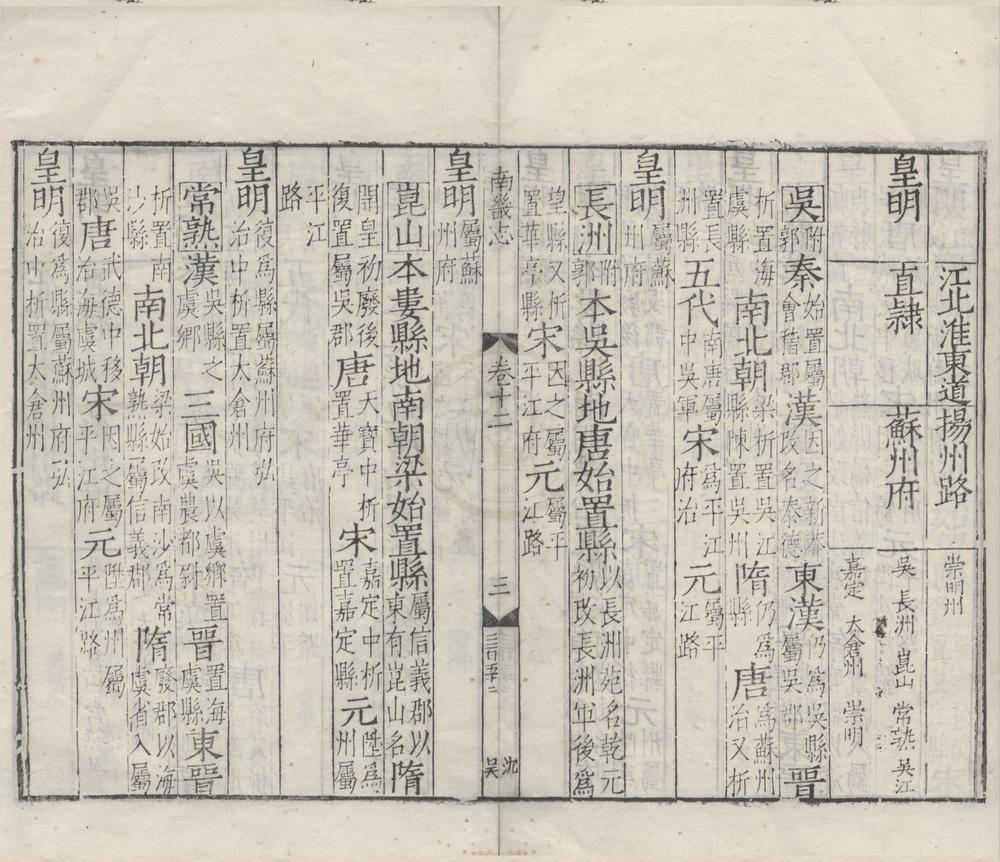 江北淮東道揚州路 崇明州
皇明 直隸 蘇州府 吳 長洲 崑山 常熟 吳江
嘉定 太倉州 崇明
吳附郭秦始置屬會稽郡漢因之新莽改名泰德東漢仍爲吳縣屬吳郡晉
析置海虞縣南北朝梁析置吳縣陳置吳州隋仍爲縣唐爲蘇州治又析
置長洲縣五代南唐屬中吳軍宋爲平江府治元屬平江路
皇明屬蘇州府
長洲附郭本吳縣地唐始置縣以長洲苑名乾元初改長洲軍後爲
望縣又析置華亭縣宋因之屬平江府元屬平江路
南畿志 卷十二 三 三百五十二 沈吳
皇明屬蘇州府
崑山本婁縣地南朝梁始置縣屬信義郡以東有崑山名隋
開皇初廢後復置屬吳郡唐天寶中析置華亭宋嘉定中析置嘉定縣元陞爲州屬
平江路
皇明復爲縣屬蘇州府弘治中析置太倉州
常熟漢吳縣之虞鄉三國吳以虞鄉置虞農都尉晉置海虞縣東晉
析置南沙縣南北朝梁始改南沙爲常熟縣屬信義郡隋廢郡以海虞省入屬
吳郡唐武德中移治海虞城宋因之屬平江府元陞爲州屬平江路
皇明復爲縣屬蘇州府弘治中析置太倉州